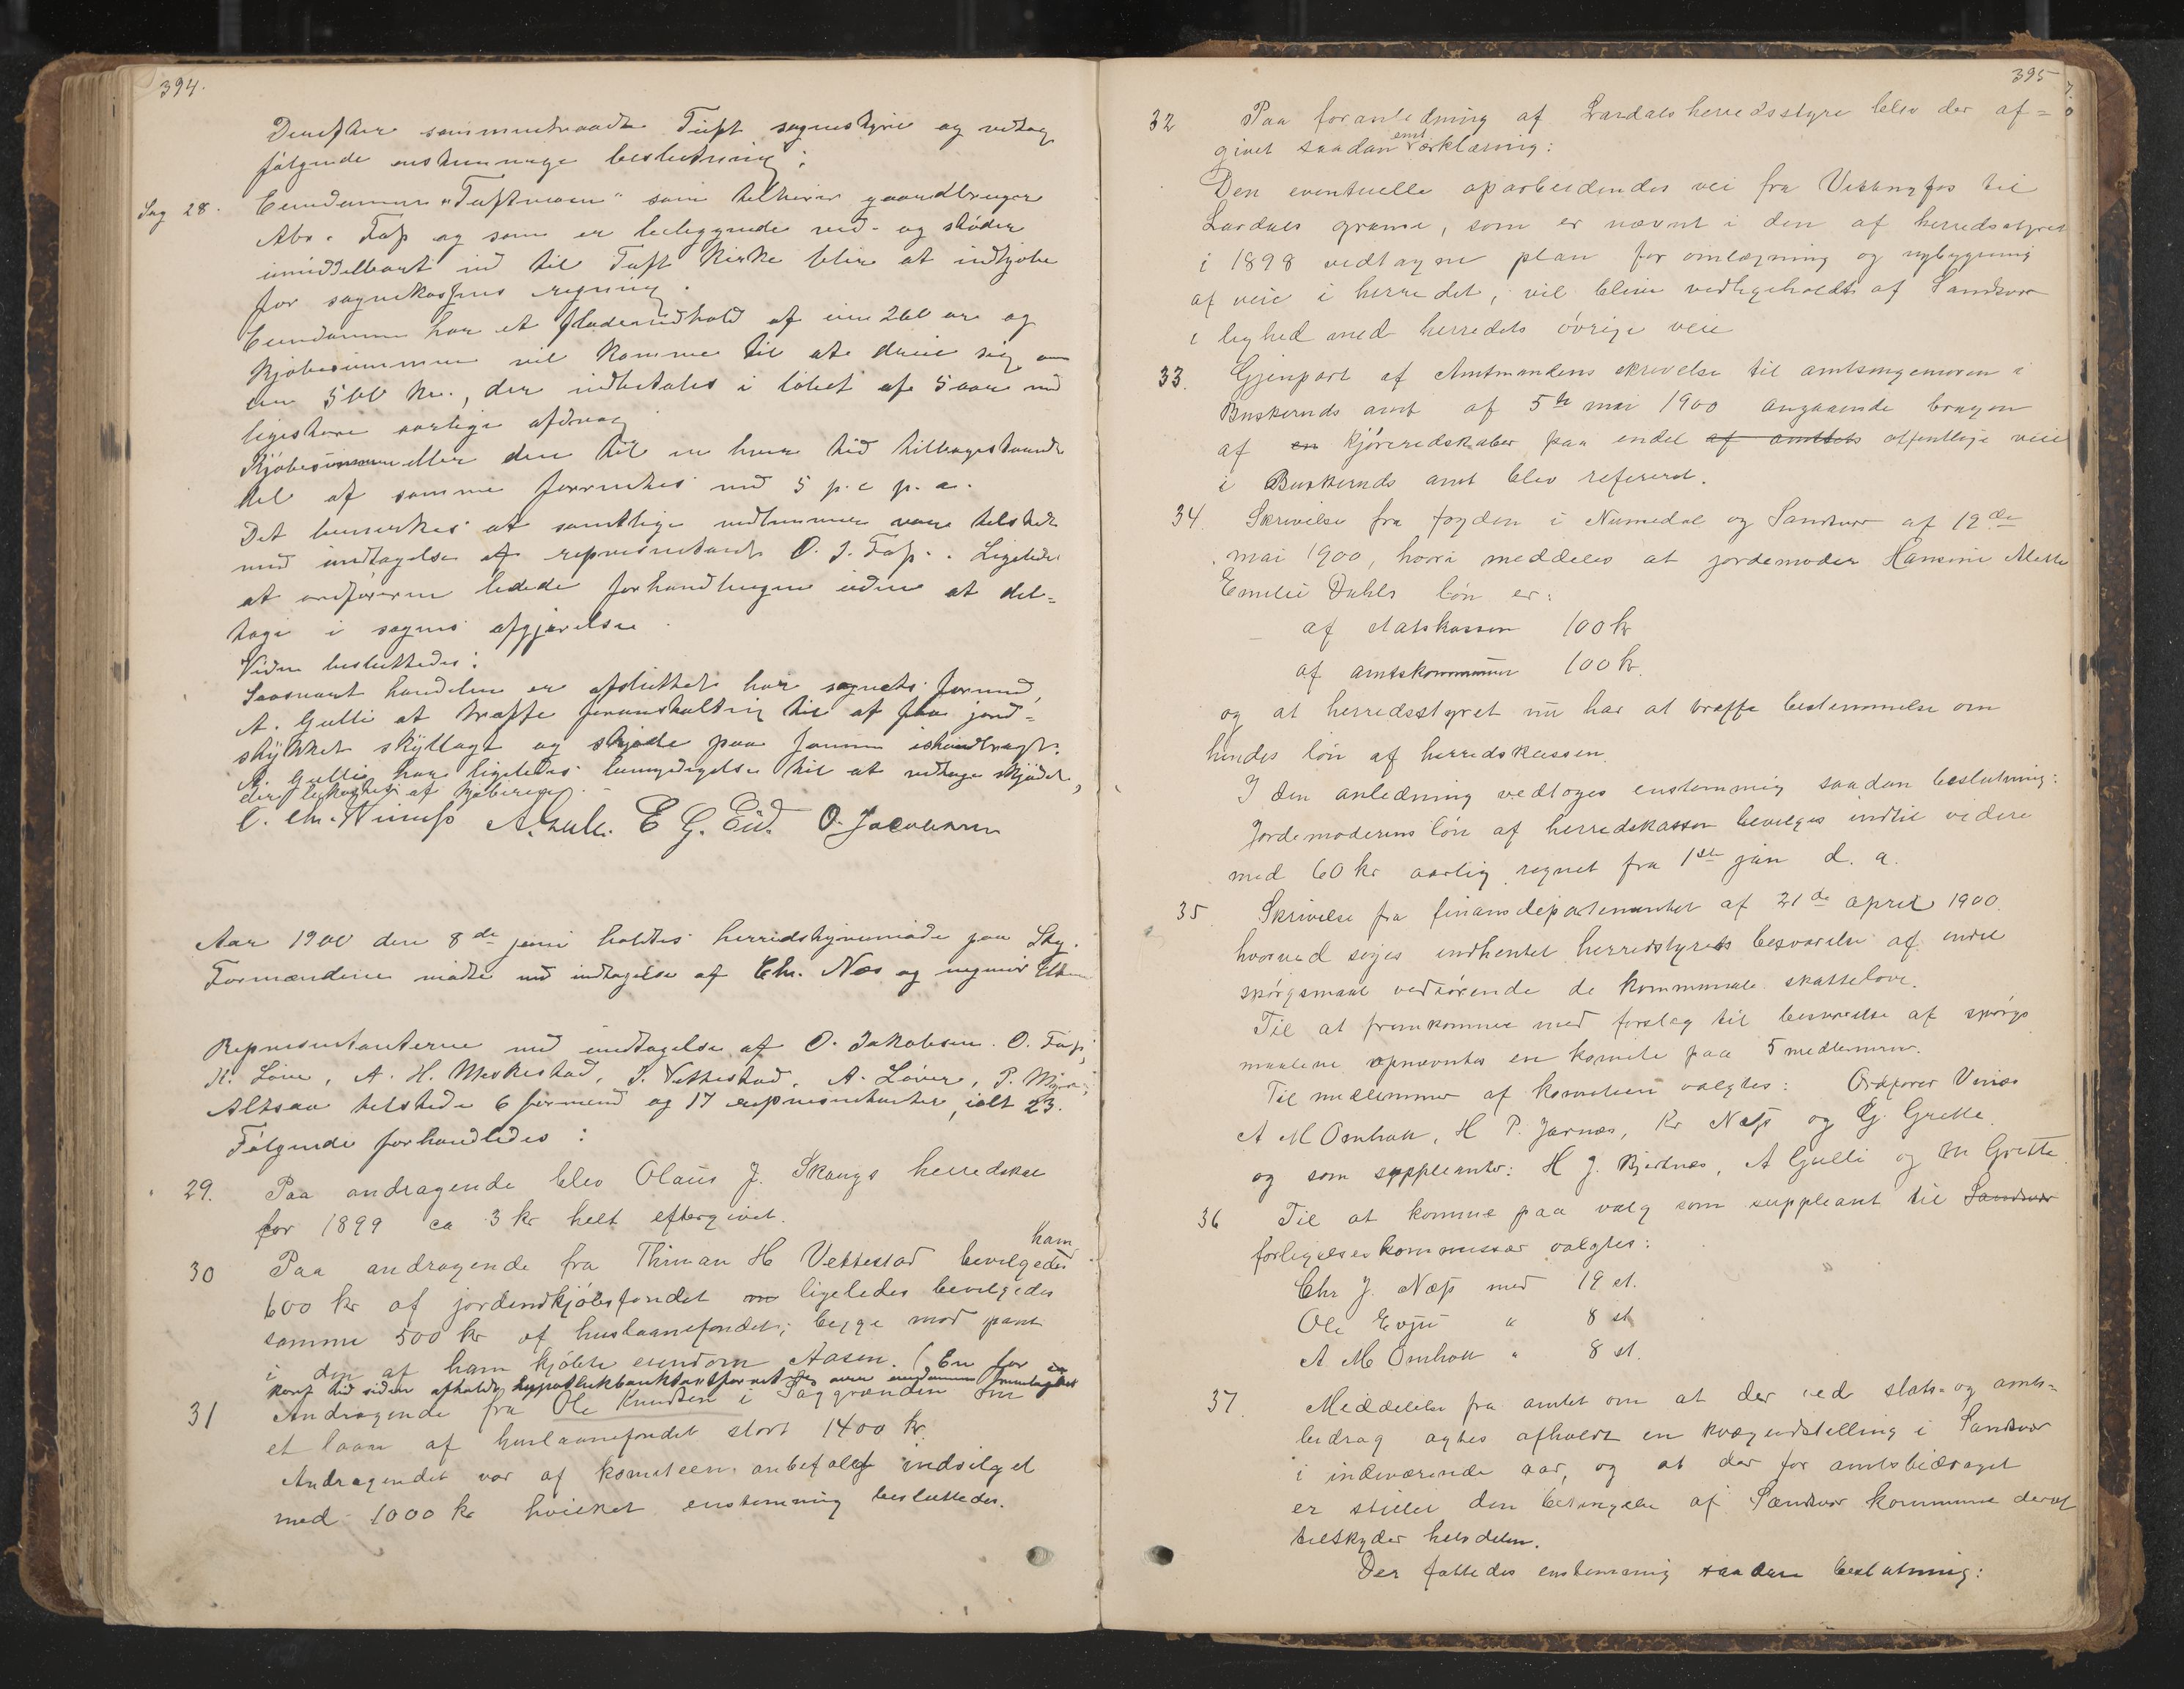 394.
Derefter sammentraadte Tuft sognestyre og vedtog
følgende enstemmige beslutning:
Sag 28. Eiendommen "Tuftmoen" som tilhører gaardbruger
Abr. Fas og som er beliggende ved og støder
umiddelbart ind til Tuft Kirke blir at indkjøbe
for sognekassens regning.
Eiendommen har et fladeindhold af ca 200 ar og
Kjøbesummen vil komme til at dreie sig om
500 kr., der indbetales i løbet af 5 aar med
ligestore aarlige afdrag
Kjøbesummen eller den til en hver tid tilbagestaaende
del af samme forrentes med 5 p.c p.a.
Det bemerkes at samtlige medlemmer vare tilstede
med undtagelse af repræsentant O. J. Fas. Ligeledes
at ordføreren ledede forhandlingen uden at del=
tage i sagens afgjørelse.
Videre besluttedes:
Saasnart handelen er afsluttet har sognets formand,
A. Gulli at træffe foranstaltning til at faa jord=
stykket skyldlagt og skjøde paa samme istandbragt.
A. Gulli har ligeledes bemyndigelse til at modtage skjødet,
af kjøberen.
A. Gulli. E G. Eid. O. Jacobsen
Aar 1900 den 8de juni holdtes herredstyremøde paa
Formændene mødte med undtagelse af Chr. Næs og
Repræsentanterne med undtagelse af O. Jakobsen. O. Fas,
K. Løver, A. H. Moskestad, J. Vettestad, A. Løver, P.
Altsaa tilstede 6 formænd og 17 repræsentanter, ialt 23.
Følgende forhandledes:
29. Paa andragende blev Olaus J. Skaugs herredskat
for 1899 ca 3 kr helt eftergivet.
ham
30 Paa andragende fra Thiman H Vettestad bevilgedes
600 kr af jordindkjøbsfondet ligeledes bevilgedes
samme 500 kr af huslaanefondet; begge mod pant
i den af ham kjøbte eiendom Aasen. (En for
kort tid siden afholdt hypothekbanktaxt over eiendommen
31 Andragende fra Ole Knudsen i Saggrænden om
et laan af huslaanefondet stort 1400 kr.
Andragendet var af komiteen anbefalet indvilget
med 1000 kr hvilket enstemmig besluttedes.
395
32 Paa foranledning af Lardals herredsstyre blev der af=
givet saadan erklæring:
Den eventuelle oparbeidendes vei fra Vittingfos til
Lardals grænse, som er nævnt i den af herredsstyret
i 1898 vedtagne plan for omlægning og nybygning
af veie i herredet, vil blive vedligeholdt af Sandsvær
i lighed med herredets øvrige veie
33. Gjenpart af Amtmandens skrivelse til amtsingeniøren i
Buskeruds amt af 5te mai 1900 angaaende brugen
af en kjøreredskaber paa endel af amtets offentlige veie
i Buskeruds amt blev referert.
34. Skrivelse fra fogden i Numedal og Sandsvær af 12de
mai 1900, hvori meddeles at jordemoder Hansine Alette
Emilie Dahls løn er:
af statskassen 100 kr
af amtskommunen 100 kr.
og at herredsstyret nu har at træffe bestemmelse om
hendes løn af herredskassen.
I den anledning vedtoges enstemmig saadan beslutning:
Jordemoderens løn af herredskassen bevilges indtil videre
med 60 kr aarlig regnet fra 1ste jan d. a.
35 Skrivelse fra finansdepartementet af 21de april 1900
hvorved søges indhentet herredstyrets besvarelse af endel
spørgsmaal vedrørende de kommunale skattelove.
Til at fremkomme med forslag til besvarelse af spørgs
maalene opnævntes en komite paa 5 medlemmer.
Til medlemmer af komiteen valgtes: Ordfører Vinæs
A M Omholt, H P. Jarnæs, Kr Næss og G. Grette.
og som suppleanter: H J. Bjertnæs, A Gulli og M Grette
36 Til at komme paa valg som suppleant til Sandsvær
forligelseskommissær valgtes:
Chr J. Næss med 19 st.
Ole Evju " 8 st
A. M Omholt " 8 st.
37. Meddelelse fra amtet om at der ved stats- og amts=
bidrag agtes afholdt en kvægudstilling i Sandsvær
i indeværende aar, og at der for amtsbidraget
er stillet den betingelse af Sandsvær kommune deraf
tilskyder halvdelen.
Der fattedes enstemmig saadan beslutning: